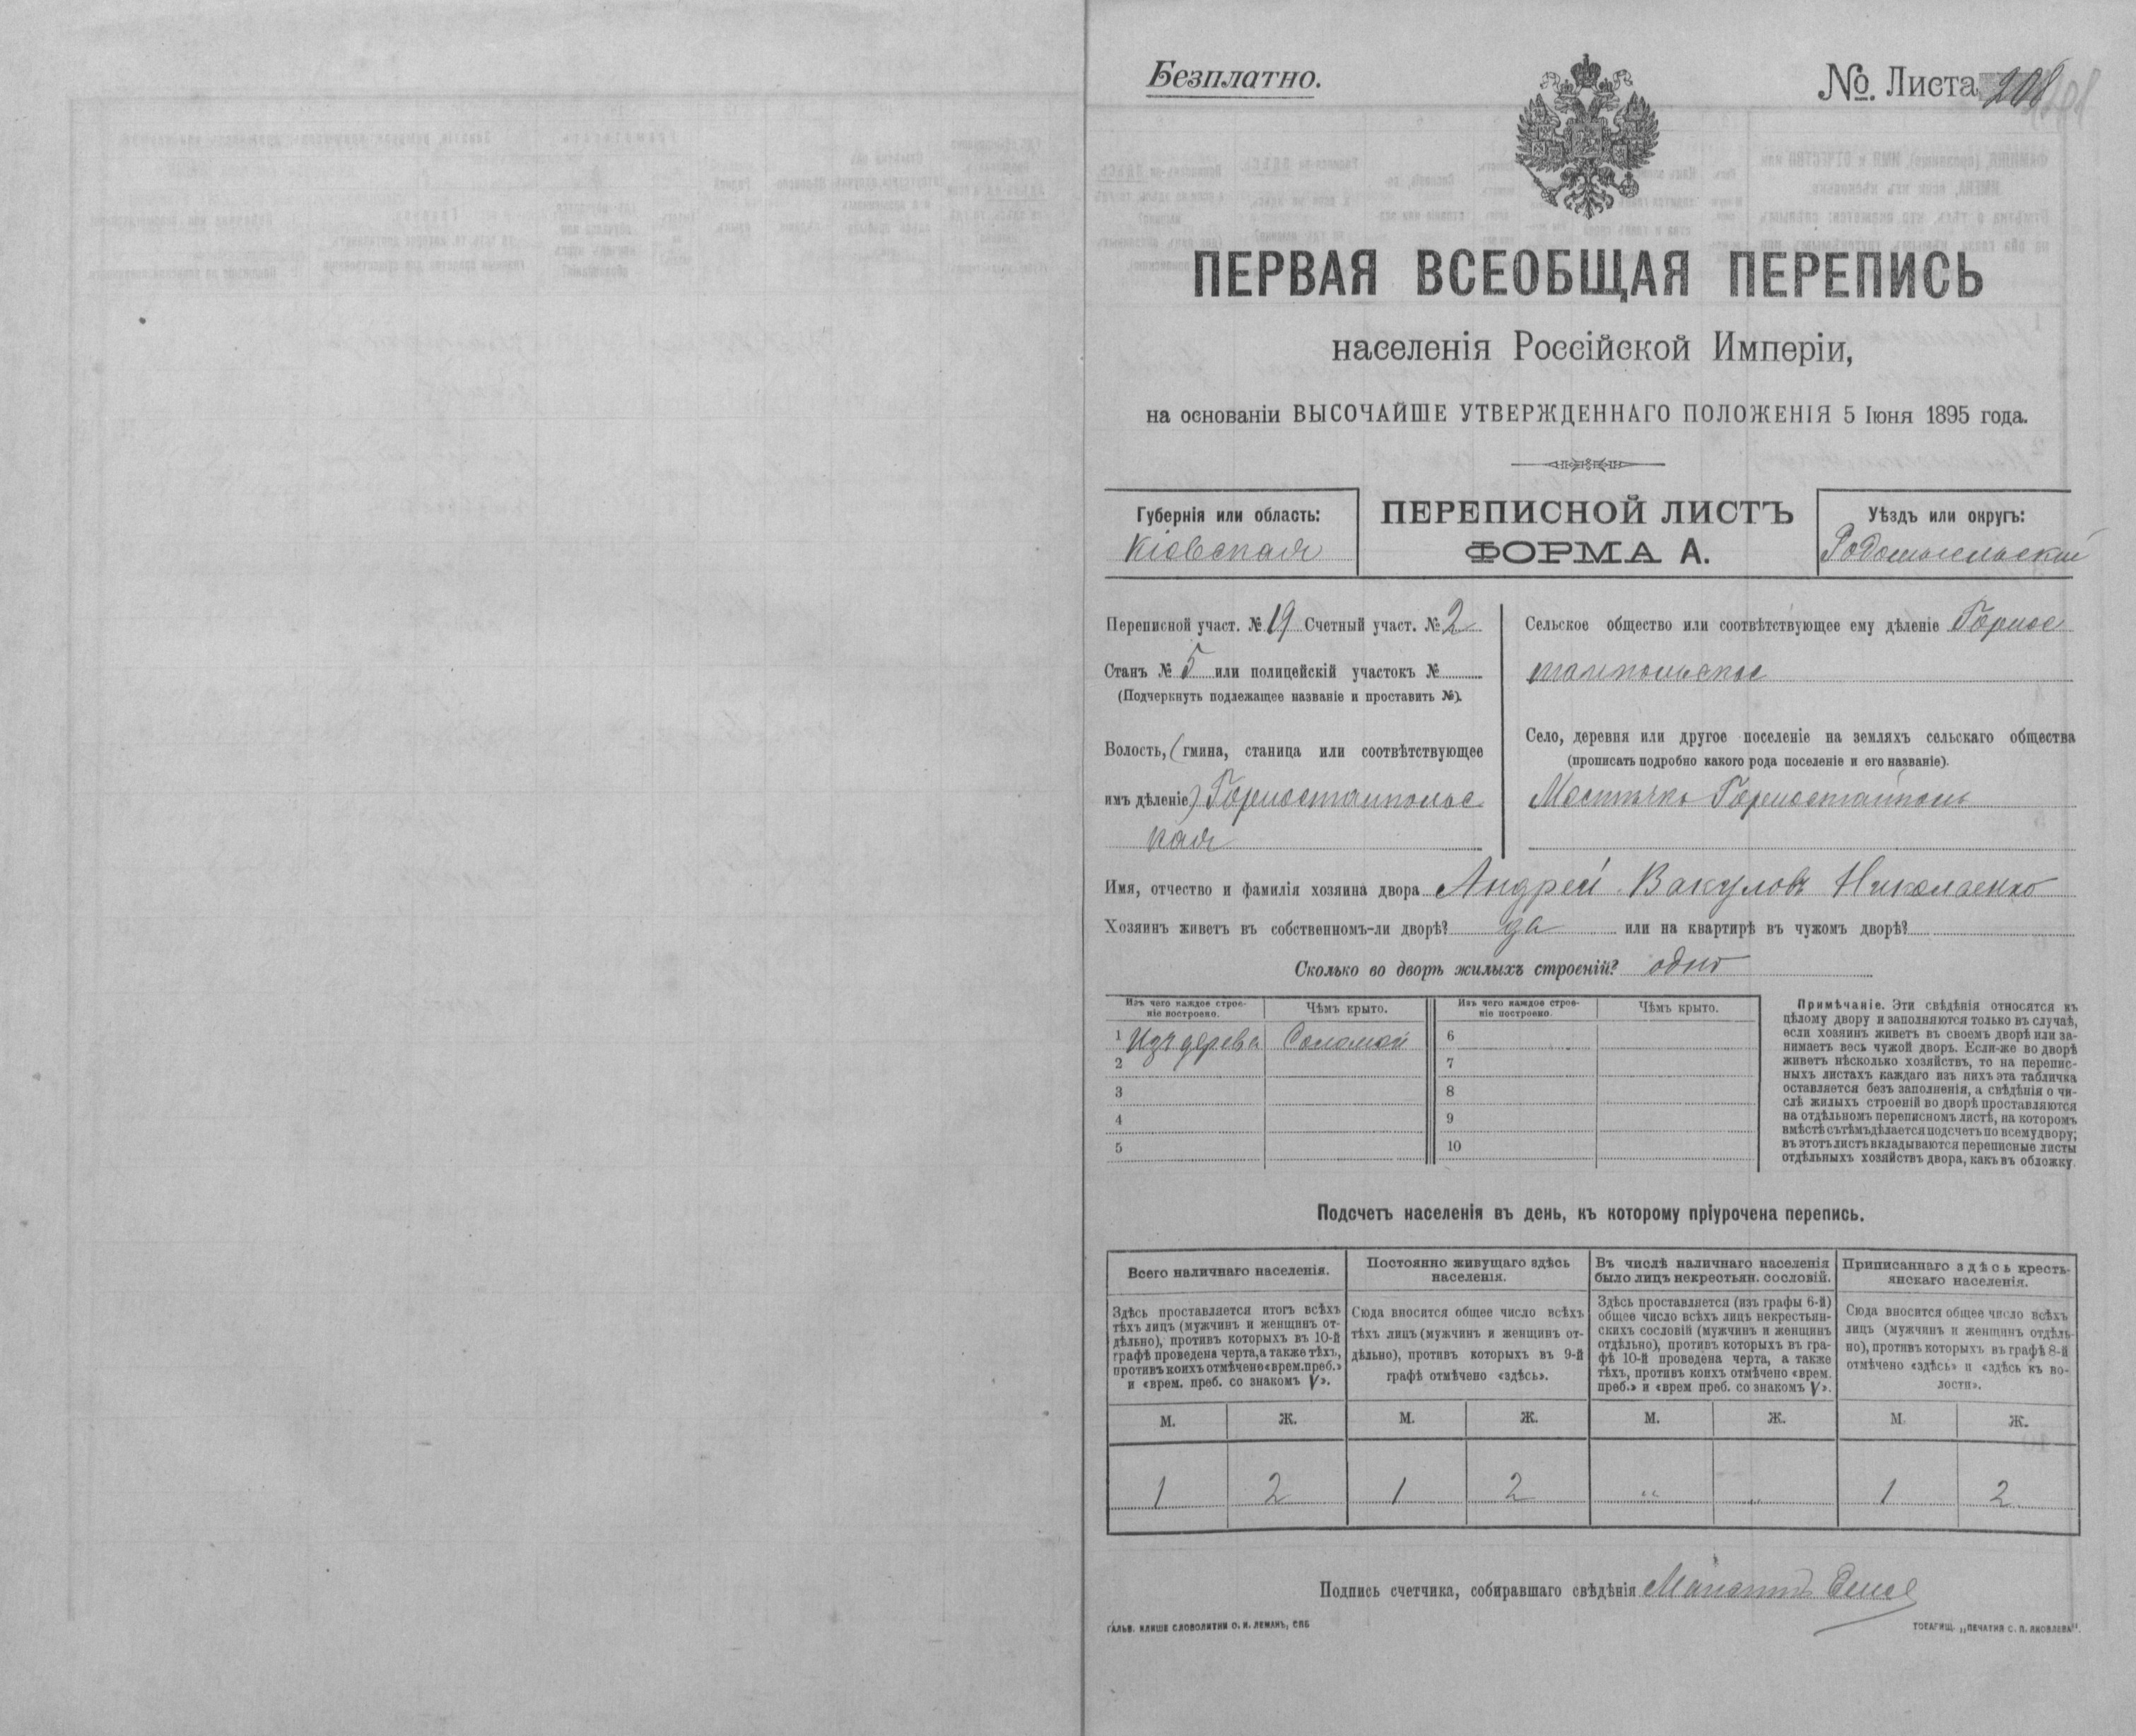 Безплатно.
№. Листа 208
ПЕРВАЯ ВСЕОБЩАЯ ПЕРЕПИСЬ
населенія Россійской Имперіи,
на основаніи ВЫСОЧАЙШЕ УТВЕРЖДЕННАГО ПОЛОЖЕНІЯ 5 Іюня 1895 года.
Губернія или область:
Кіевская
ПЕРЕПИСНОЙ ЛИСТЪ
ФОРМА А.
Уѣздъ или округъ:
Радомысльскій
Переписной участ. № 19 Счетный участ. № 2
Станъ № 5 или полицейскій участокъ №
(Подчеркнуть подлежащее названіе и проставить №).
Волость, (гмина, станица или соотвѣтствующее
имъ дѣленіе) Горностайпольс
кая
Сельское общество или соотвѣтствующее ему дѣленіе Горнос
тайпольское
Село, деревня или другое поселеніе на земляхъ сельскаго общества
(прописать подробно какого рода поселеніе и его названіе).
Мѣстечко Горностайполь
Имя, отчество и фамилія хозяина двора Андрей Вакуловъ Николаенко
Хозяинъ живетъ въ собственномъ-ли дворѣ? да или на квартирѣ въ чужомъ дворѣ?
Сколько во дворѣ жилыхъ строеній? одно
Изъ чего каждое строе-
ніе построено.
Чѣмъ крыто.
Изъ чего каждое строе-
ніе построено.
Чѣмъ крыто.
1 Изъ дерева Соломой 6
2 7
3 8
4 9
5 10
Примѣчаніе. Эти свѣдѣнія относятся къ
цѣлому двору и заполняются только въ случаѣ,
если хозяинъ живетъ въ своемъ дворѣ или за-
нимаетъ весь чужой дворъ. Если-же во дворѣ
живетъ нѣсколько хозяйствъ, то на перепис-
ныхъ листахъ каждаго изъ нихъ эта табличка
оставляется безъ заполненія, а свѣдѣнія о чи-
слѣ жилыхъ строеній во дворѣ проставляются
на отдѣльномъ переписномъ листѣ, на которомъ
вмѣстѣ съ тѣмъ дѣлается подсчетъ по всему двору;
въ этотъ листъ вкладываются переписные листы
отдѣльныхъ хозяйствъ двора, какъ въ обложку.
Подсчетъ населенія въ день, къ которому пріурочена перепись.
Всего наличнаго населенія.
Здѣсь проставляется итогъ всѣхъ
тѣхъ лицъ (мужчинъ и женщинъ от-
дѣльно), противъ которыхъ въ 10-й
графѣ проведена черта, а также тѣхъ,
противъ коихъ отмѣчено «врем. преб.»
и «врем. преб. со знакомъ V».
Постоянно живущаго здѣсь
населенія.
Сюда вносится общее число всѣхъ
тѣхъ лицъ (мужчинъ и женщинъ от-
дѣльно), противъ которыхъ въ 9-й
графѣ отмѣчено «здѣсь».
Въ числѣ наличнаго населенія
было лицъ некрестьян. сословій.
Здѣсь проставляется (изъ графы 6-й)
общее число всѣхъ лицъ некрестьян-
скихъ сословій (мужчинъ и женщинъ
отдѣльно), противъ которыхъ въ гра-
фѣ 10-й проведена черта, а также
тѣхъ, противъ коихъ отмѣчено «врем.
преб.» и «врем преб. со знакомъ V».
Приписаннаго здѣсь кресть-
янскаго населенія.
Сюда вносится общее число всѣхъ
лицъ (мужчинъ и женщинъ отдѣль-
но), противъ которыхъ въ графѣ 8-й
отмѣчено «здѣсь» и «здѣсь къ во-
лости».
М. Ж. М. Ж. М. Ж. М. Ж.
1 2 1 2 " " 1 2
Подпись счетчика, собиравшаго свѣдѣнія
ГАЛЬВ. КЛИШЕ СЛОВОЛИТНИ О. И. ЛЕМАНЪ, СПБ
ТОВАРИЩ. „ПЕЧАТНЯ С. П. ЯКОВЛЕВА".